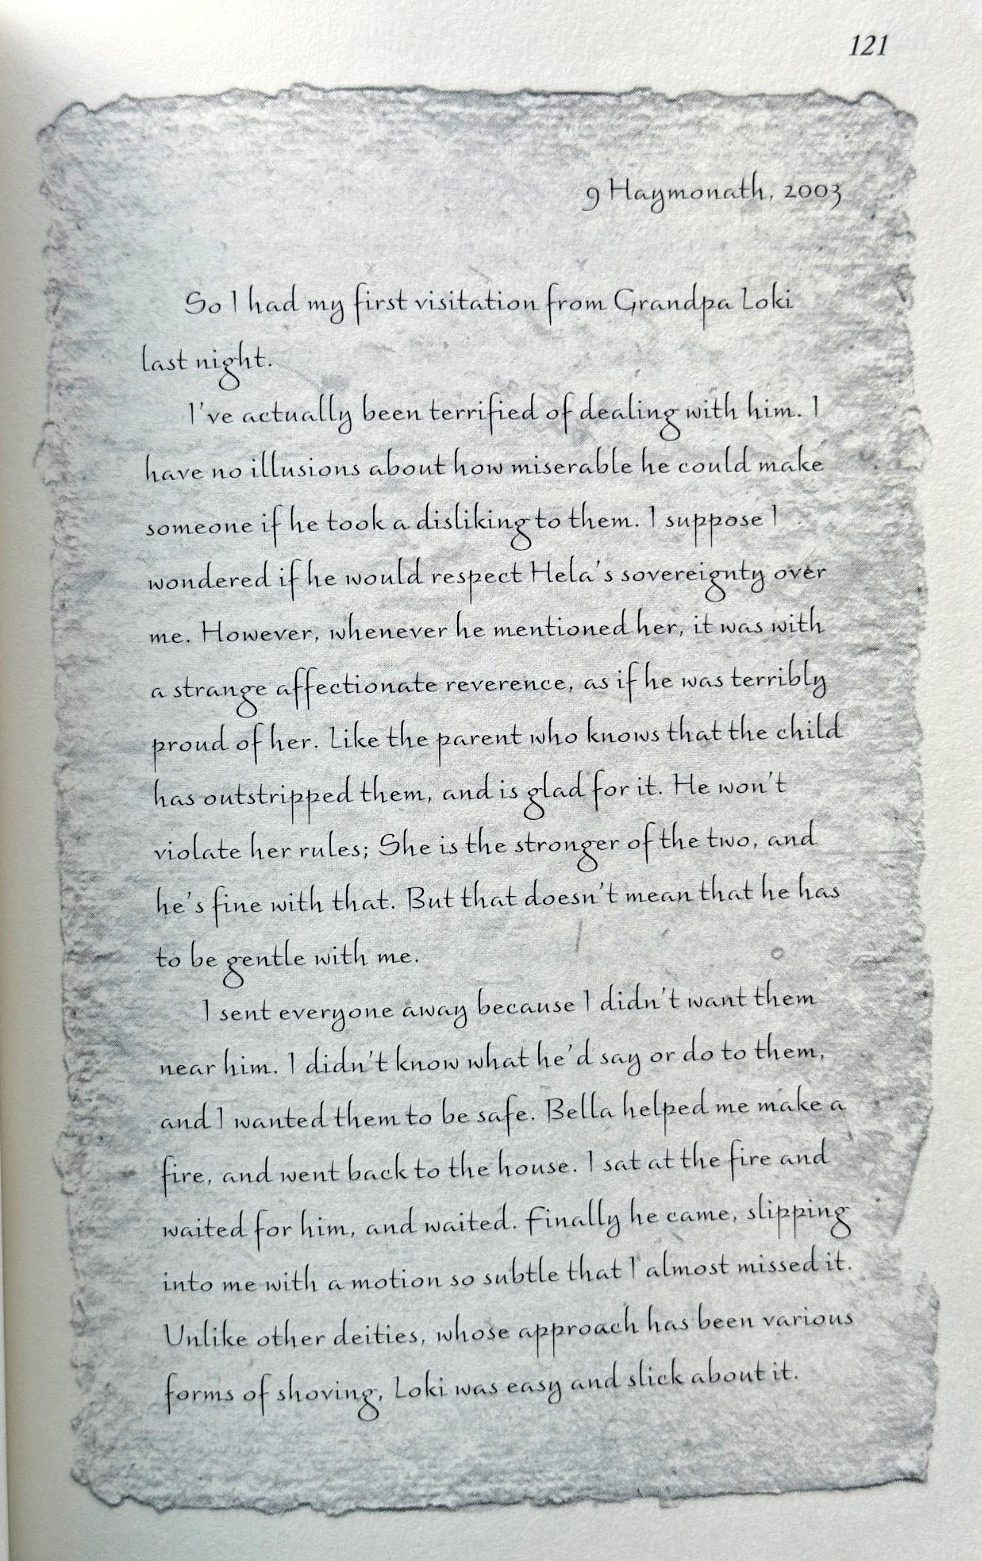 121
9 Haymonath, 2003
So I had my first visitation from Grandpa Loki
last night.
I've actually been terrified of dealing with him. I
have no illusions about how miserable he could make
someone if he took a disliking to them. I suppose I
wondered if he would respect Hela's sovereignty over
me. However, whenever he mentioned her, it was with
a strange affectionate reverence, as if he was terribly
proud of her. Like the parent who knows that the child
has outstripped them, and is glad for it. He won't
violate her rules; She is the stronger of the two, and
he's fine with that. But that doesn't mean that he has
to be gentle with me.
I sent everyone away because I didn't want them
near him. I didn't know what he'd say or do to them,
and I wanted them to be safe. Bella helped me make a
fire, and went back to the house. I sat at the fire and
waited for him, and waited. Finally he came, slipping
into me with a motion so subtle that I almost missed it.
Unlike other deities, whose approach has been various
forms of shoving, Loki was easy and slick about it.